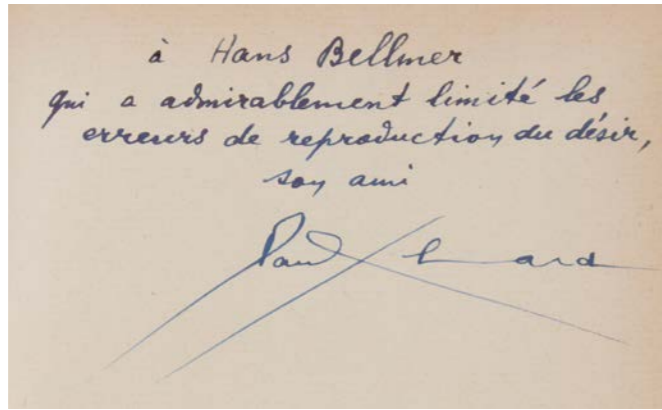 à Hans Bellmer
qui a admirablement limité les
erreurs de reproduction du désir,
son ami
Paul Eluard